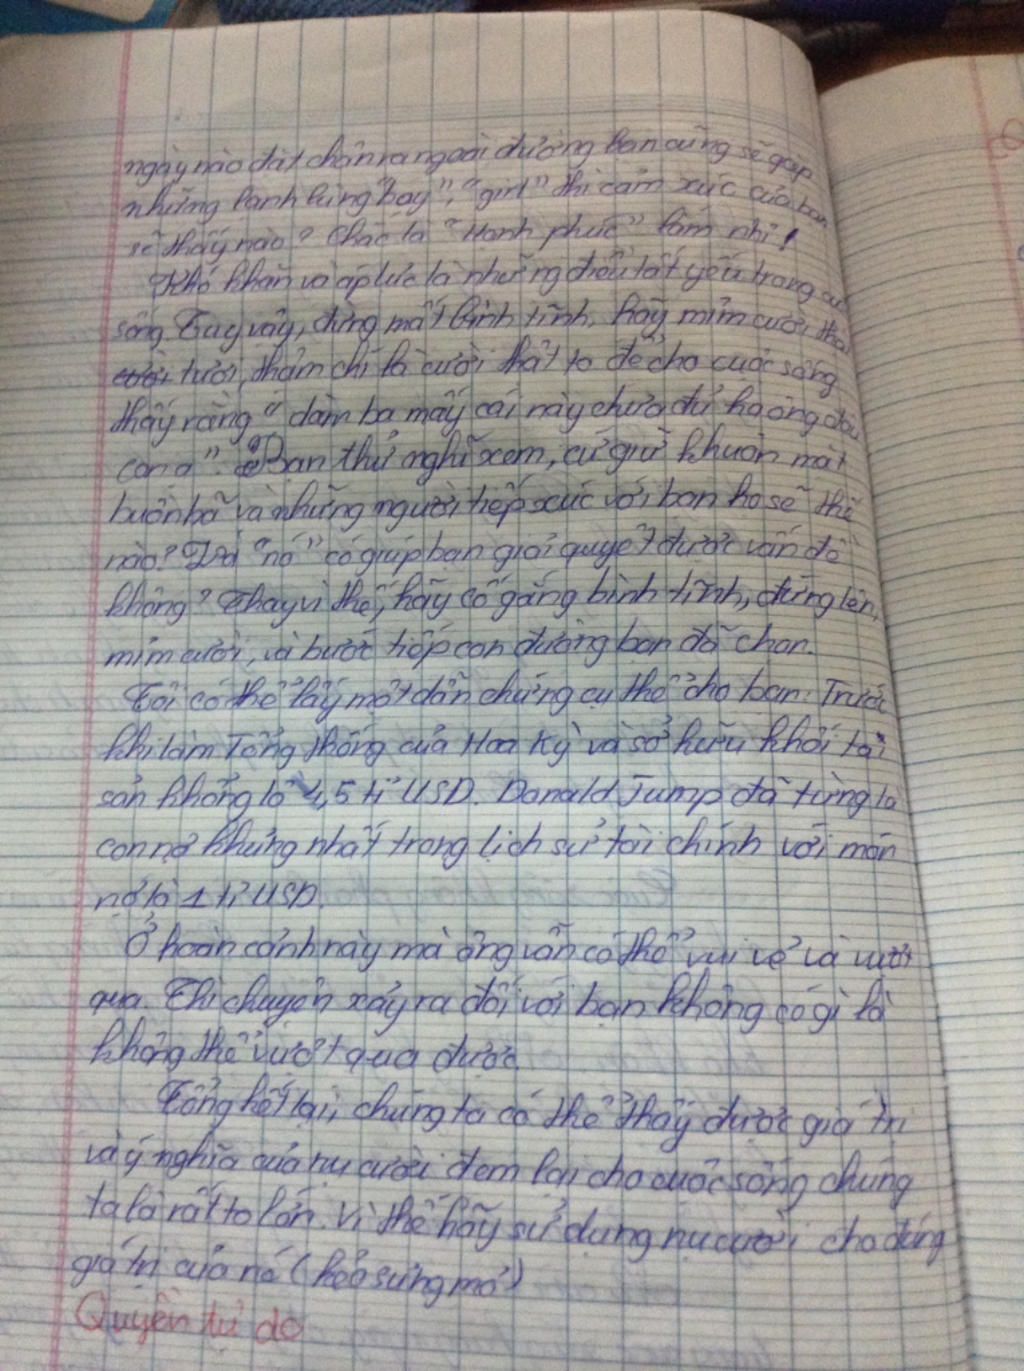 ngày nào đặt chân ra ngoài đường bạn cũng sẽ gặp
những lạnh lùng "bay", "girl" thì cảm xúc của bạn
sẽ thấy nào? Chắc là "Hạnh phúc" lắm nhỉ!
Khó khăn và áp lực là những điều tất yếu trong cu
sống. Tuy vậy, đừng mất bình tĩnh, hãy mỉm cười thật
tươi, thậm chí là cười thật to để cho cuộc sống
thấy rằng "dăm ba mấy cái này chưa đủ hạ ông đâu
con ạ". Bạn thử nghĩ xem, cứ giữ khuôn mặt
buồn bã và những người tiếp xúc với bạn họ sẽ thế
nào? Và "nó" có giúp bạn giải quyết được vấn đề
không? Thay vì thế, hãy cố gắng bình tĩnh, đứng lên,
mỉm cười, và bước tiếp con đường bạn đã chọn.
Tôi có thể lấy một dẫn chứng cụ thể cho bạn: Trước
khi làm Tổng thống của Hoa Kỳ và sở hữu khối tài
sản khổng lồ 4,5 tỉ USD. Donald Jump đã từng là
con nợ khủng nhất trong lịch sử tài chính với món
nợ là 1 tỉ USD.
Ở hoàn cảnh này mà ông vẫn có thể vui vẻ và vượt
qua. Thì chuyện xảy ra đối với bạn không có gì là
không thể vượt qua được.
Tổng kết lại, chúng ta có thể thấy được giá trị
và ý nghĩa của nụ cười đem lại cho cuộc sống chúng
ta là rất to lớn. Vì thế hãy sử dụng nụ cười cho đúng
giá trị của nó (kẻo sưng mỏ)
Quyền tự do